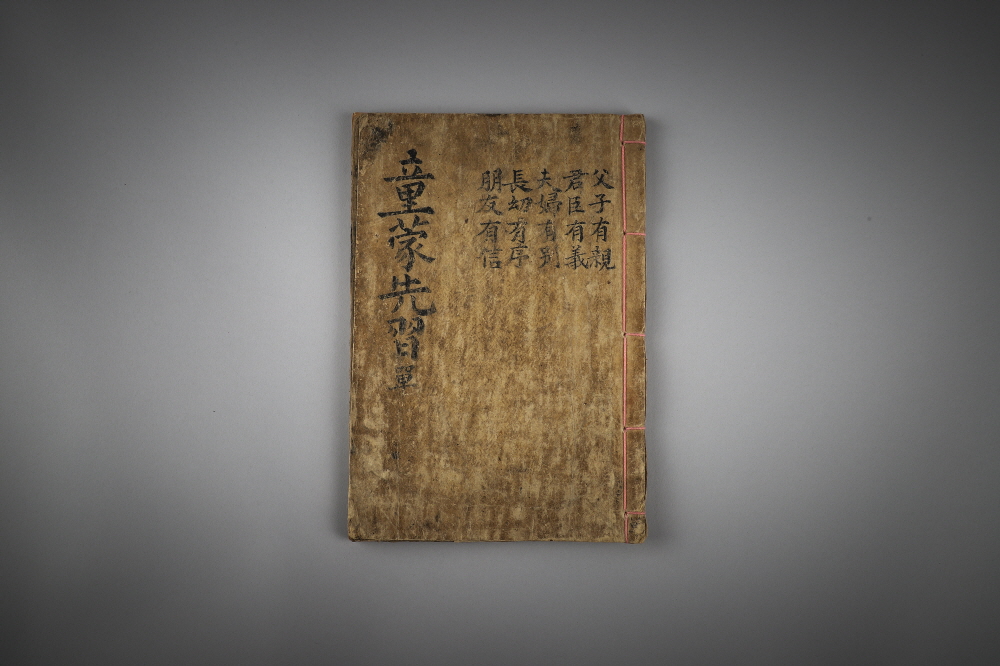 父子有親
君臣有義
夫婦有別
長幼有序
朋友有信
童蒙先習 單